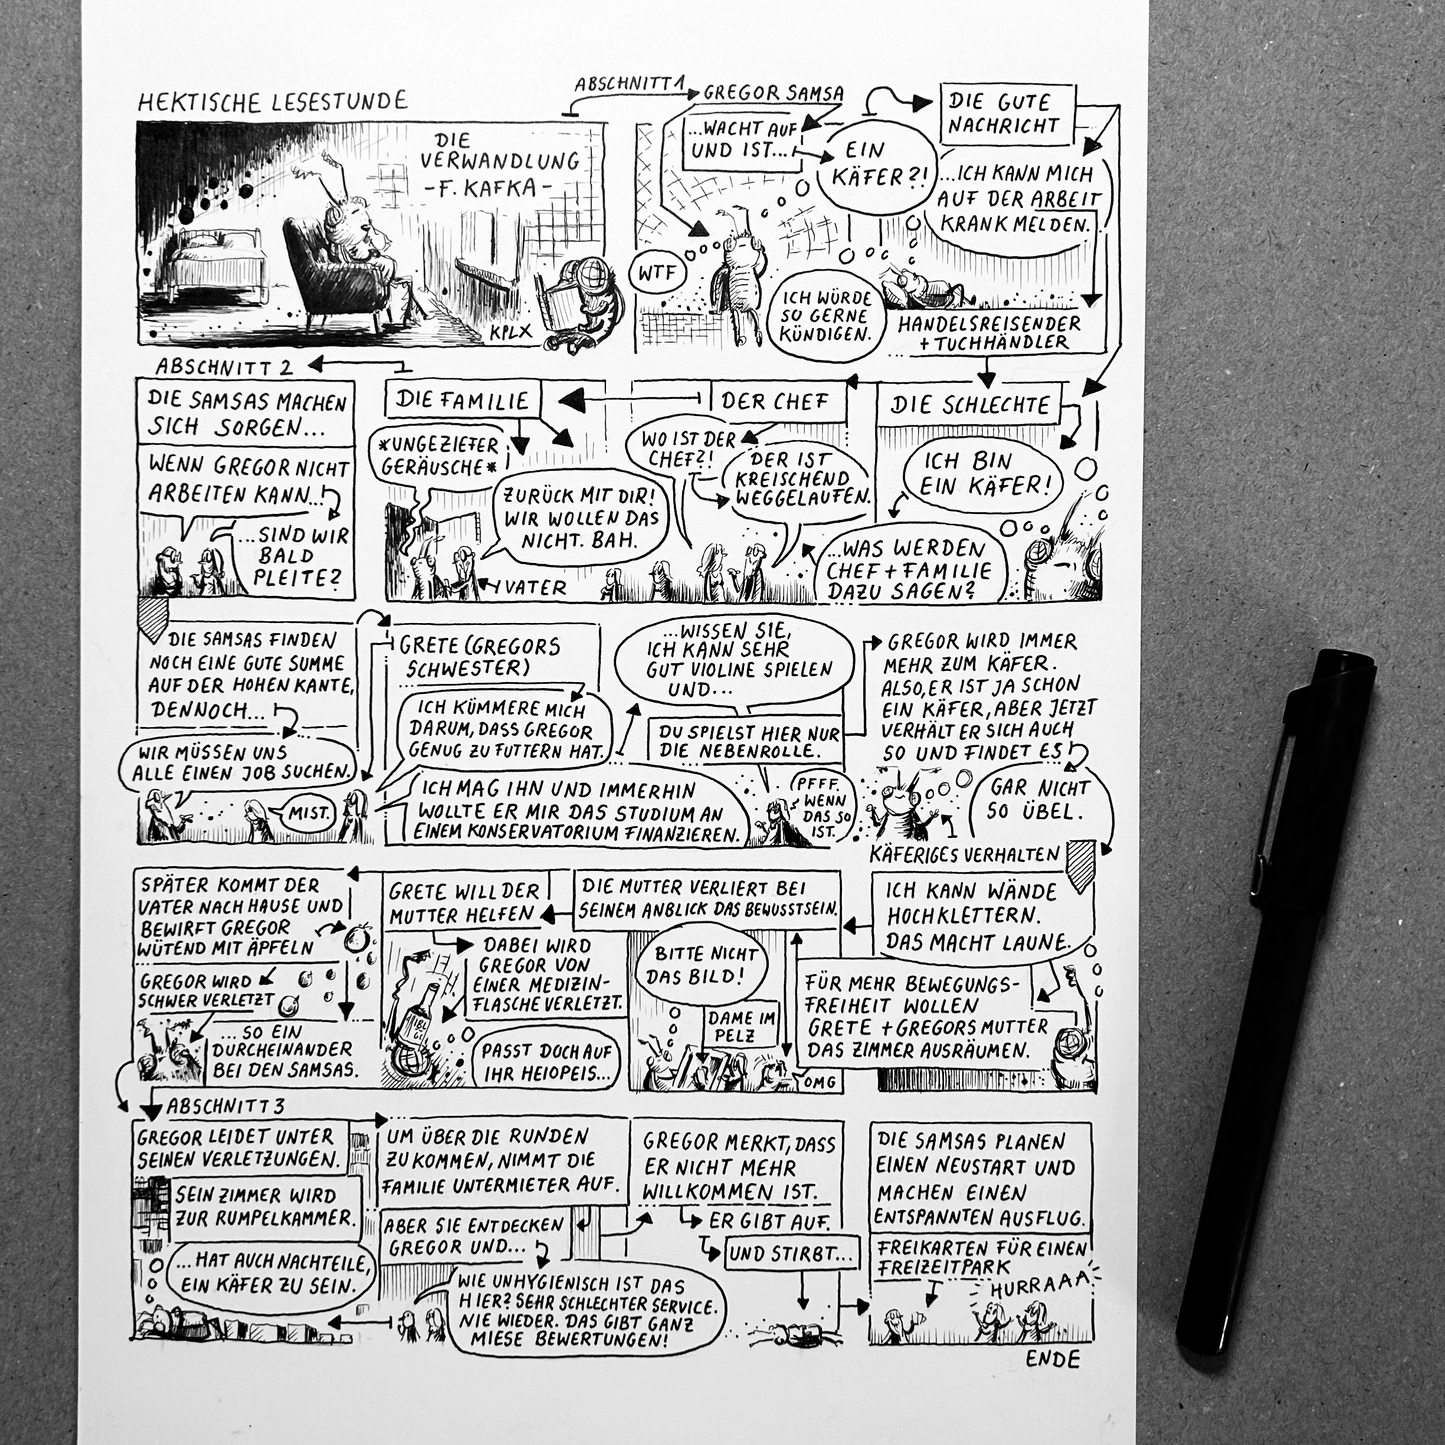 HEKTISCHE LESESTUNDE
DIE
VERWANDLUNG
-F. KAFKA-
KPLX
ABSCHNITT 1
GREGOR SAMSA
...WACHT AUF
UND IST...
EIN
KÄFER?!
WTF
ICH WÜRDE
SO GERNE
KÜNDIGEN.
DIE GUTE
NACHRICHT
...ICH KANN MICH
AUF DER ARBEIT
KRANK MELDEN.
HANDELSREISENDER
+ TUCHHÄNDLER
DIE SCHLECHTE
ICH BIN
EIN KÄFER!
...WAS WERDEN
CHEF + FAMILIE
DAZU SAGEN?
DER CHEF
WO IST DER
CHEF?!
DER IST
KREISCHEND
WEGGELAUFEN.
DIE FAMILIE
*UNGEZIEFER
GERÄUSCHE*
ZURÜCK MIT DIR!
WIR WOLLEN DAS
NICHT. BAH.
VATER
ABSCHNITT 2
DIE SAMSAS MACHEN
SICH SORGEN...
WENN GREGOR NICHT
ARBEITEN KANN...
...SIND WIR
BALD
PLEITE?
DIE SAMSAS FINDEN
NOCH EINE GUTE SUMME
AUF DER HOHEN KANTE,
DENNOCH...
WIR MÜSSEN UNS
ALLE EINEN JOB SUCHEN.
MIST.
GRETE (GREGORS
SCHWESTER)
ICH KÜMMERE MICH
DARUM, DASS GREGOR
GENUG ZU FUTTERN HAT.
ICH MAG IHN UND IMMERHIN
WOLLTE ER MIR DAS STUDIUM AN
EINEM KONSERVATORIUM FINANZIEREN.
...WISSEN SIE,
ICH KANN SEHR
GUT VIOLINE SPIELEN
UND...
DU SPIELST HIER NUR
DIE NEBENROLLE.
PFFF.
WENN
DAS SO
IST.
GREGOR WIRD IMMER
MEHR ZUM KÄFER.
ALSO, ER IST JA SCHON
EIN KÄFER, ABER JETZT
VERHÄLT ER SICH AUCH
SO UND FINDET ES
GAR NICHT
SO ÜBEL.
KÄFERIGES VERHALTEN
ICH KANN WÄNDE
HOCHKLETTERN.
DAS MACHT LAUNE.
FÜR MEHR BEWEGUNGS-
FREIHEIT WOLLEN
GRETE + GREGORS MUTTER
DAS ZIMMER AUSRÄUMEN.
DIE MUTTER VERLIERT BEI
SEINEM ANBLICK DAS BEWUSSTSEIN.
BITTE NICHT
DAS BILD!
DAME IM
PELZ
OMG
GRETE WILL DER
MUTTER HELFEN
DABEI WIRD
GREGOR VON
EINER MEDIZIN-
FLASCHE VERLETZT.
PASST DOCH AUF
IHR HEIOPEIS...
SPÄTER KOMMT DER
VATER NACH HAUSE UND
BEWIRFT GREGOR
WÜTEND MIT ÄPFELN
GREGOR WIRD
SCHWER VERLETZT
...SO EIN
DURCHEINANDER
BEI DEN SAMSAS.
ABSCHNITT 3
GREGOR LEIDET UNTER
SEINEN VERLETZUNGEN.
SEIN ZIMMER WIRD
ZUR RUMPELKAMMER.
...HAT AUCH NACHTEILE,
EIN KÄFER ZU SEIN.
UM ÜBER DIE RUNDEN
ZU KOMMEN, NIMMT DIE
FAMILIE UNTERMIETER AUF.
ABER SIE ENTDECKEN
GREGOR UND...
WIE UNHYGIENISCH IST DAS
HIER? SEHR SCHLECHTER SERVICE.
NIE WIEDER. DAS GIBT GANZ
MIESE BEWERTUNGEN!
GREGOR MERKT, DASS
ER NICHT MEHR
WILLKOMMEN IST.
ER GIBT AUF.
UND STIRBT...
DIE SAMSAS PLANEN
EINEN NEUSTART UND
MACHEN EINEN
ENTSPANNTEN AUSFLUG.
FREIKARTEN FÜR EINEN
FREIZEITPARK
HURRAAA
ENDE